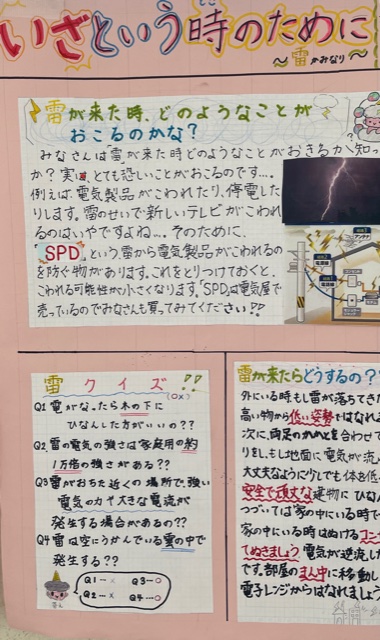 いざという時のために
～雷かみなり～
雷が来た時、どのようなことが
おこるのかな?
みなさんは雷が来た時どのようなことがおきるか知っ
か?実は、とても恐しいことがおこるのです…。
例えば、電気製品がこわれたり、停電した
りします。雷のせいで新しいテレビがこわれ
るのはいやですよね…。そのために、
SPDという雷から電気製品がこわれるの
を防ぐ物があります。これをとりつけておくと、
こわれる可能性が小さくなります。SPDは電気屋で
売っているのでみなさんも買ってみてください!!
アンテナ
電源線
雷クイズ!!
(○×)
Q1 雷がなったら木の下に
ひなんした方がいいの??
Q2 雷の電気の強さは家庭用の約
1万倍の強さがある??
Q3 雷がおちた近くの場所で、強い
電気の力や大きな電流が
発生する場合があるの??
Q4 雷は空にうかんでいる雲の中で
発生する??
Q1…× Q3…○
Q2…× Q4…○
答え
雷が来たらどうするの?
外にいる時もし雷が落ちてきた
高い物から低い姿勢ではなれ
次に、両足のかかとを合わせて
りをしもし地面に電気が流
大丈夫なように少しでも体を低
安全で頑丈な建物にひな
つづいては家の中にいる時で
家の中にいる時はぬけるコン
てぬきましょう 電気が逆流し
です。部屋のまん中に移動し
電子レンジからはなれましょう